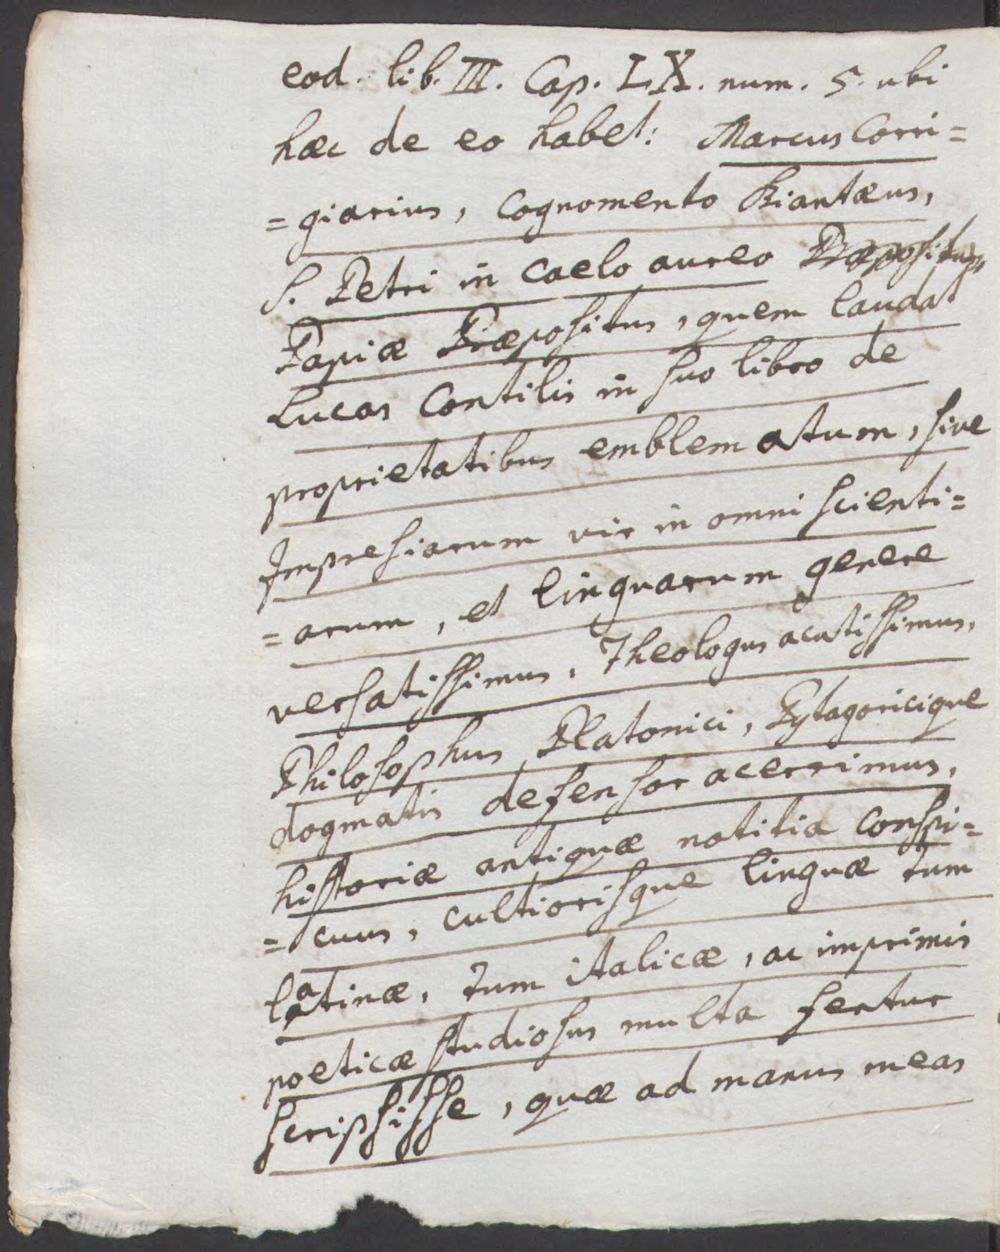 eod. lib. III. Cap. LX. num. 5. ubi
hæc de eo habet: Marcus Corri=
=giarius, cognomento Biantæus,
S. Petri in caelo aureo Præpositus,
Papiæ Præpositus, quem laudat
Lucas Contilis in suo libro de
proprietatibus emblematum, sive
Impresiarum vir in omni scienti=
=arum, et linguarum genere
versatissimus, Theologus acutissimus,
Philosophus Platonici, Pytagoricique
dogmatis defensor acerrimus,
historiæ antiquæ notitia conspi=
=cuus, cultiorisque linguæ tum
latinæ, tum italicæ, ac imprimis
poeticæ studiosus multa fertur
scripsisse, quæ ad manus meas